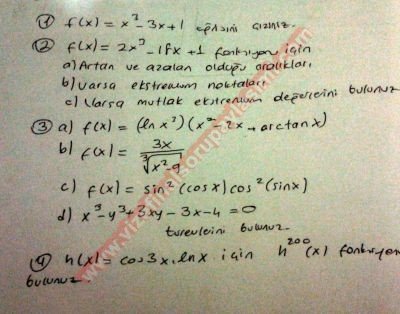 ① f(x) = x³ - 3x + 1 eğrisini çiziniz.
② f(x) = 2x³ - 18x + 1 fonksiyonu için
a) Artan ve azalan olduğu aralıkları
b) Varsa ekstremum noktaları
c) Varsa mutlak ekstremum değerlerini bulunuz
③ a) f(x) = (ln x²)(x² - 2x + arctan x)
b) f(x) = 3x / ∛(x² - 9)
c) f(x) = sin²(cos x) cos²(sin x)
d) x³ - y³ + 3xy - 3x - 4 = 0
türevlerini bulunuz.
④ h(x) = cos3x . ln x için h²⁰⁰(x) fonksiyon
bulunuz.
www.vizefinalsorupaylasimi